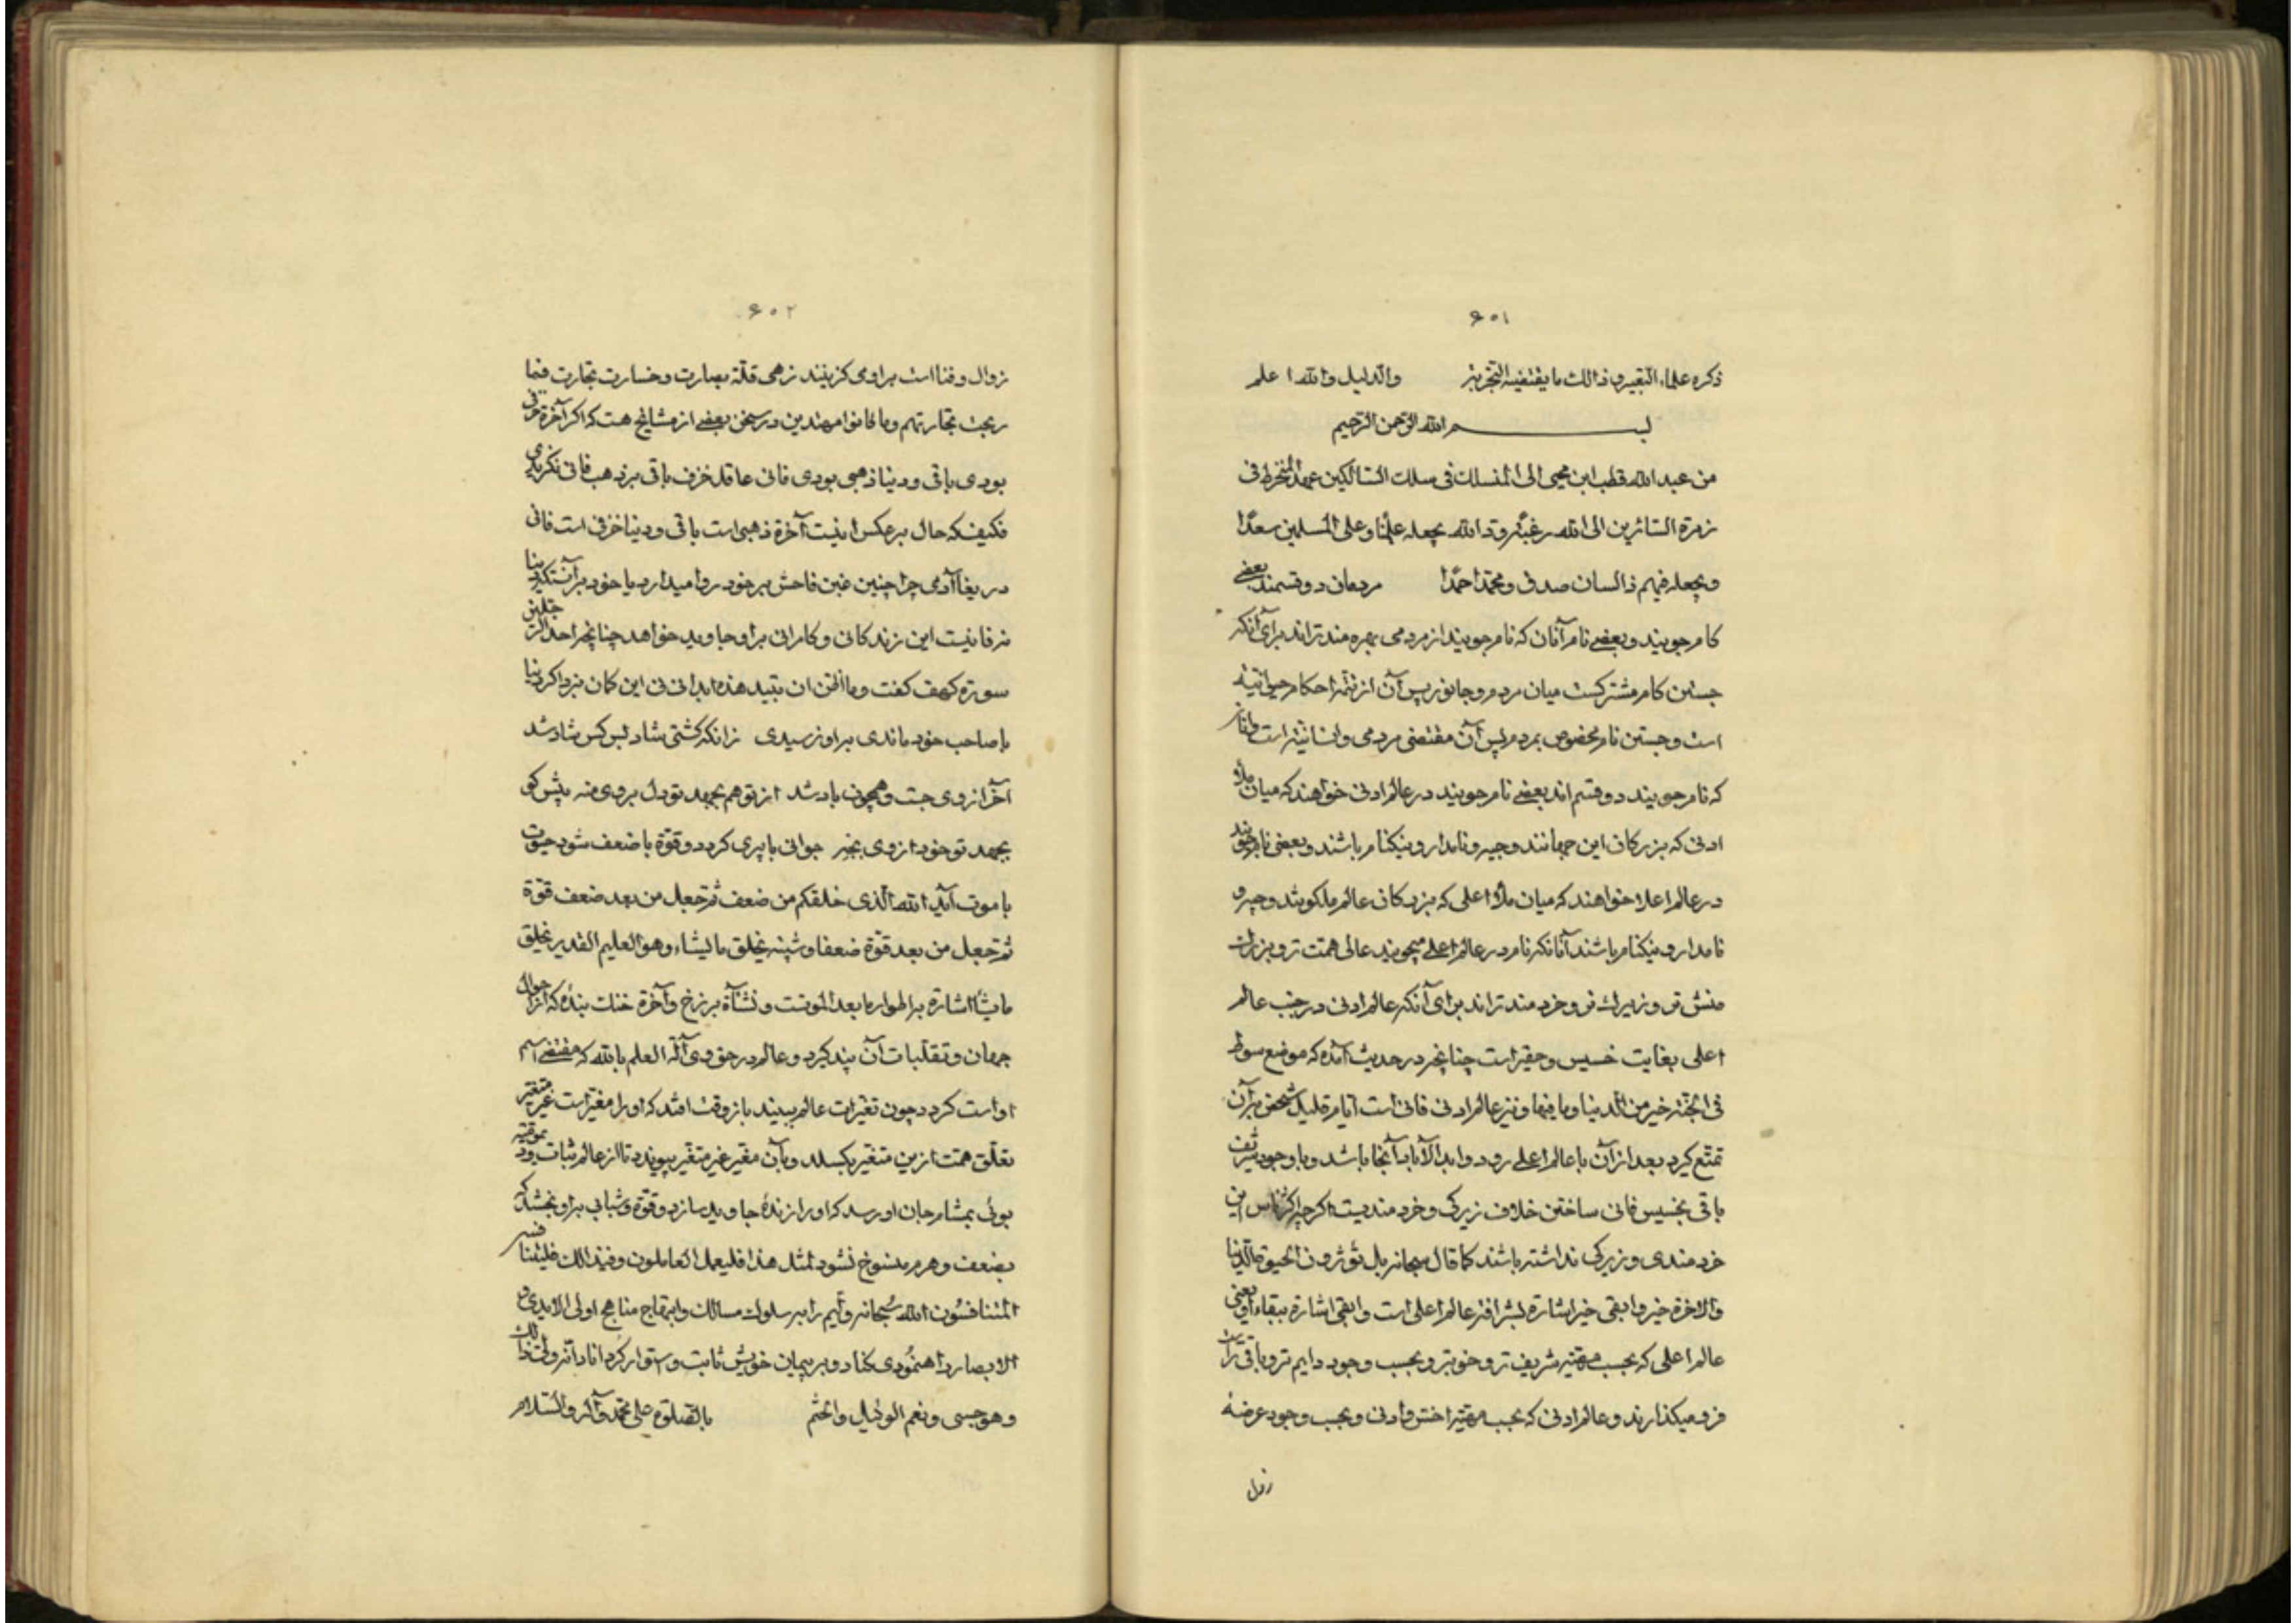 ۶۰۱
ذکره علماء التعبیر و ذالک ما یقتضیه التجربة والدلیل والله اعلم
بسم الله الرحمن الرحیم
من عبد الله قطب ابن محیی الی المنسلک فی سلک السالکین عهدا المنخرط فی
زمرة السائرین الی الله رغبة و قد الله یجعله علیّنا و علی المسلمین سعدا
و یجعله فیهم ذا لسان صدق و محمدا حمدا مردمان دو قسمند بعضی
کام جویند و بعضی نام آنان که نام جویند از مردمی بهره مندتراند برای آنکه
جستن کام مشترکست میان مردم و جانور پس آن از تتمه احکام حیوانیة
است و جستن نام مخصوص بمردم پس آن مقتضی مردمی و انسانیة است و آنان
که نام جویند دو قسم اند بعضی نام جویند در عالم ادنی خواهند که میان ملاء
ادنی که بزرکان این جهانند وجیه و نامدار و نیکنام باشند و بعضی نام جویند
در عالم اعلا خواهند که میان ملاء اعلی که بزرکان عالم ملکوتند وجیه و
نامدار و نیکنام باشند آنانکه نام در عالم اعلی میجویند عالی همت تر و بزرک
منش تر و زیرک تر و خردمندتراند برای آنکه عالم ادنی در جنب عالم
اعلی بغایت خسیس و حقیر است چنانچه در حدیث آمده که موضع سوط
فی الجنة خیر من الدنیا و ما فیها و نیز عالم ادنی فانی است ایام قلیل شخص بر آن
تمتع کیرد بعد از آن با عالم اعلی رود و ابد الآباد آنجا باشد و با وجود شریف
باقی بخسیس فانی ساختن خلاف زیرکی و خردمندیست اکرچه اکثر ناس این
خردمندی و زیرکی نداشته باشند کما قال سبحانه بل تؤثرون الحیوة الدنیا
والاخرة خیر و ابقی خیر اشارة بشرافة عالم اعلی است و ابقی اشارة ببقاء او یعنی
عالم اعلی که بحسب مهیة شریف تر و خوبتر و بحسب وجود دایم تر و باقی تر است
فرو میکذارند و عالم ادنی که بحسب مهیة اخس و ادنی و بحسب وجود عرضهٔ
زوال
۶۰۲
زوال و فنا است بر اوی کزینند زهی قلة بصارت و خسارت تجارت فما
ربحت تجارتهم و ما کانوا مهتدین در سخن بعضی از مشایخ هست که اکر آخرة خزفی
بودی باقی و دنیا ذهبی بودی فانی عاقل خزف باقی بر ذهب فانی نکزیدی
فکیف که حال بر عکس اینست آخرة ذهبی است باقی و دنیا خزفی است فانی
دریغا آدمی چرا چنین غبن فاحش بر خود روا میدارد یا خود بر آنست که دنیا
نه فانیست این زندکانی و کامرانی بر او جاوید خواهد چنانچه احد الرجلین
سورة کهف کفت و ما اظن ان تبید هذه ابدا نی نی این کمان مبر اکر دنیا
با صاحب خود ماندی بر او نرسیدی زانکه کشتی شاد بس کس شاد شد
آخر از وی جست و همچون باد شد از تو هم بجهد تو دل بر وی منه پیش کو
بجهد تو خود از وی بجه جوانی با پیری کردد و قوّة با ضعف شود حیوة
با موت آید الله الذی خلقکم من ضعف ثم جعل من بعد ضعف قوّة
ثم جعل من بعد قوّة ضعفا و شیبة یخلق ما یشاء و هو العلیم القدیر یخلق
ما یشاء اشارة بر اطوار ما بعد الموتست و نشأة برزخ و آخرة خنک بندهٔ که از احوال
جهان و تقلبات آن پند کیرد و عالم در حق وی آلة العلم بالله که مقتضی اسم
او است کردد چون تغیّرات عالم ببیند بازوقت افتد که او را مغیّر است غیر متغیر
تعلق همت ازین متغیر بکسلد و بآن مغیر غیر متغیر پیوندد تا از عالم ثبات بموقتیه
بوئی بمشام جان او رسد که او را زندهٔ جاوید سازد و قوّة و شبابی بر او بخشد که
بضعف و هرم منسوخ نشود لمثل هذا فلیعمل العاملون و فی ذالک فلیتنافس
المتنافسون الله سبحانه و تعالی ما را بر سلوک مسالک و ابتهاج مناهج اولی الایدی و
الابصار راهنمودی کناد و بر پیمان خویش ثابت و استوار کرداناد انه ولی ذالک
و هو حسبی و نعم الوکیل و اختم بالصلوة علی محمد و آله والسلام